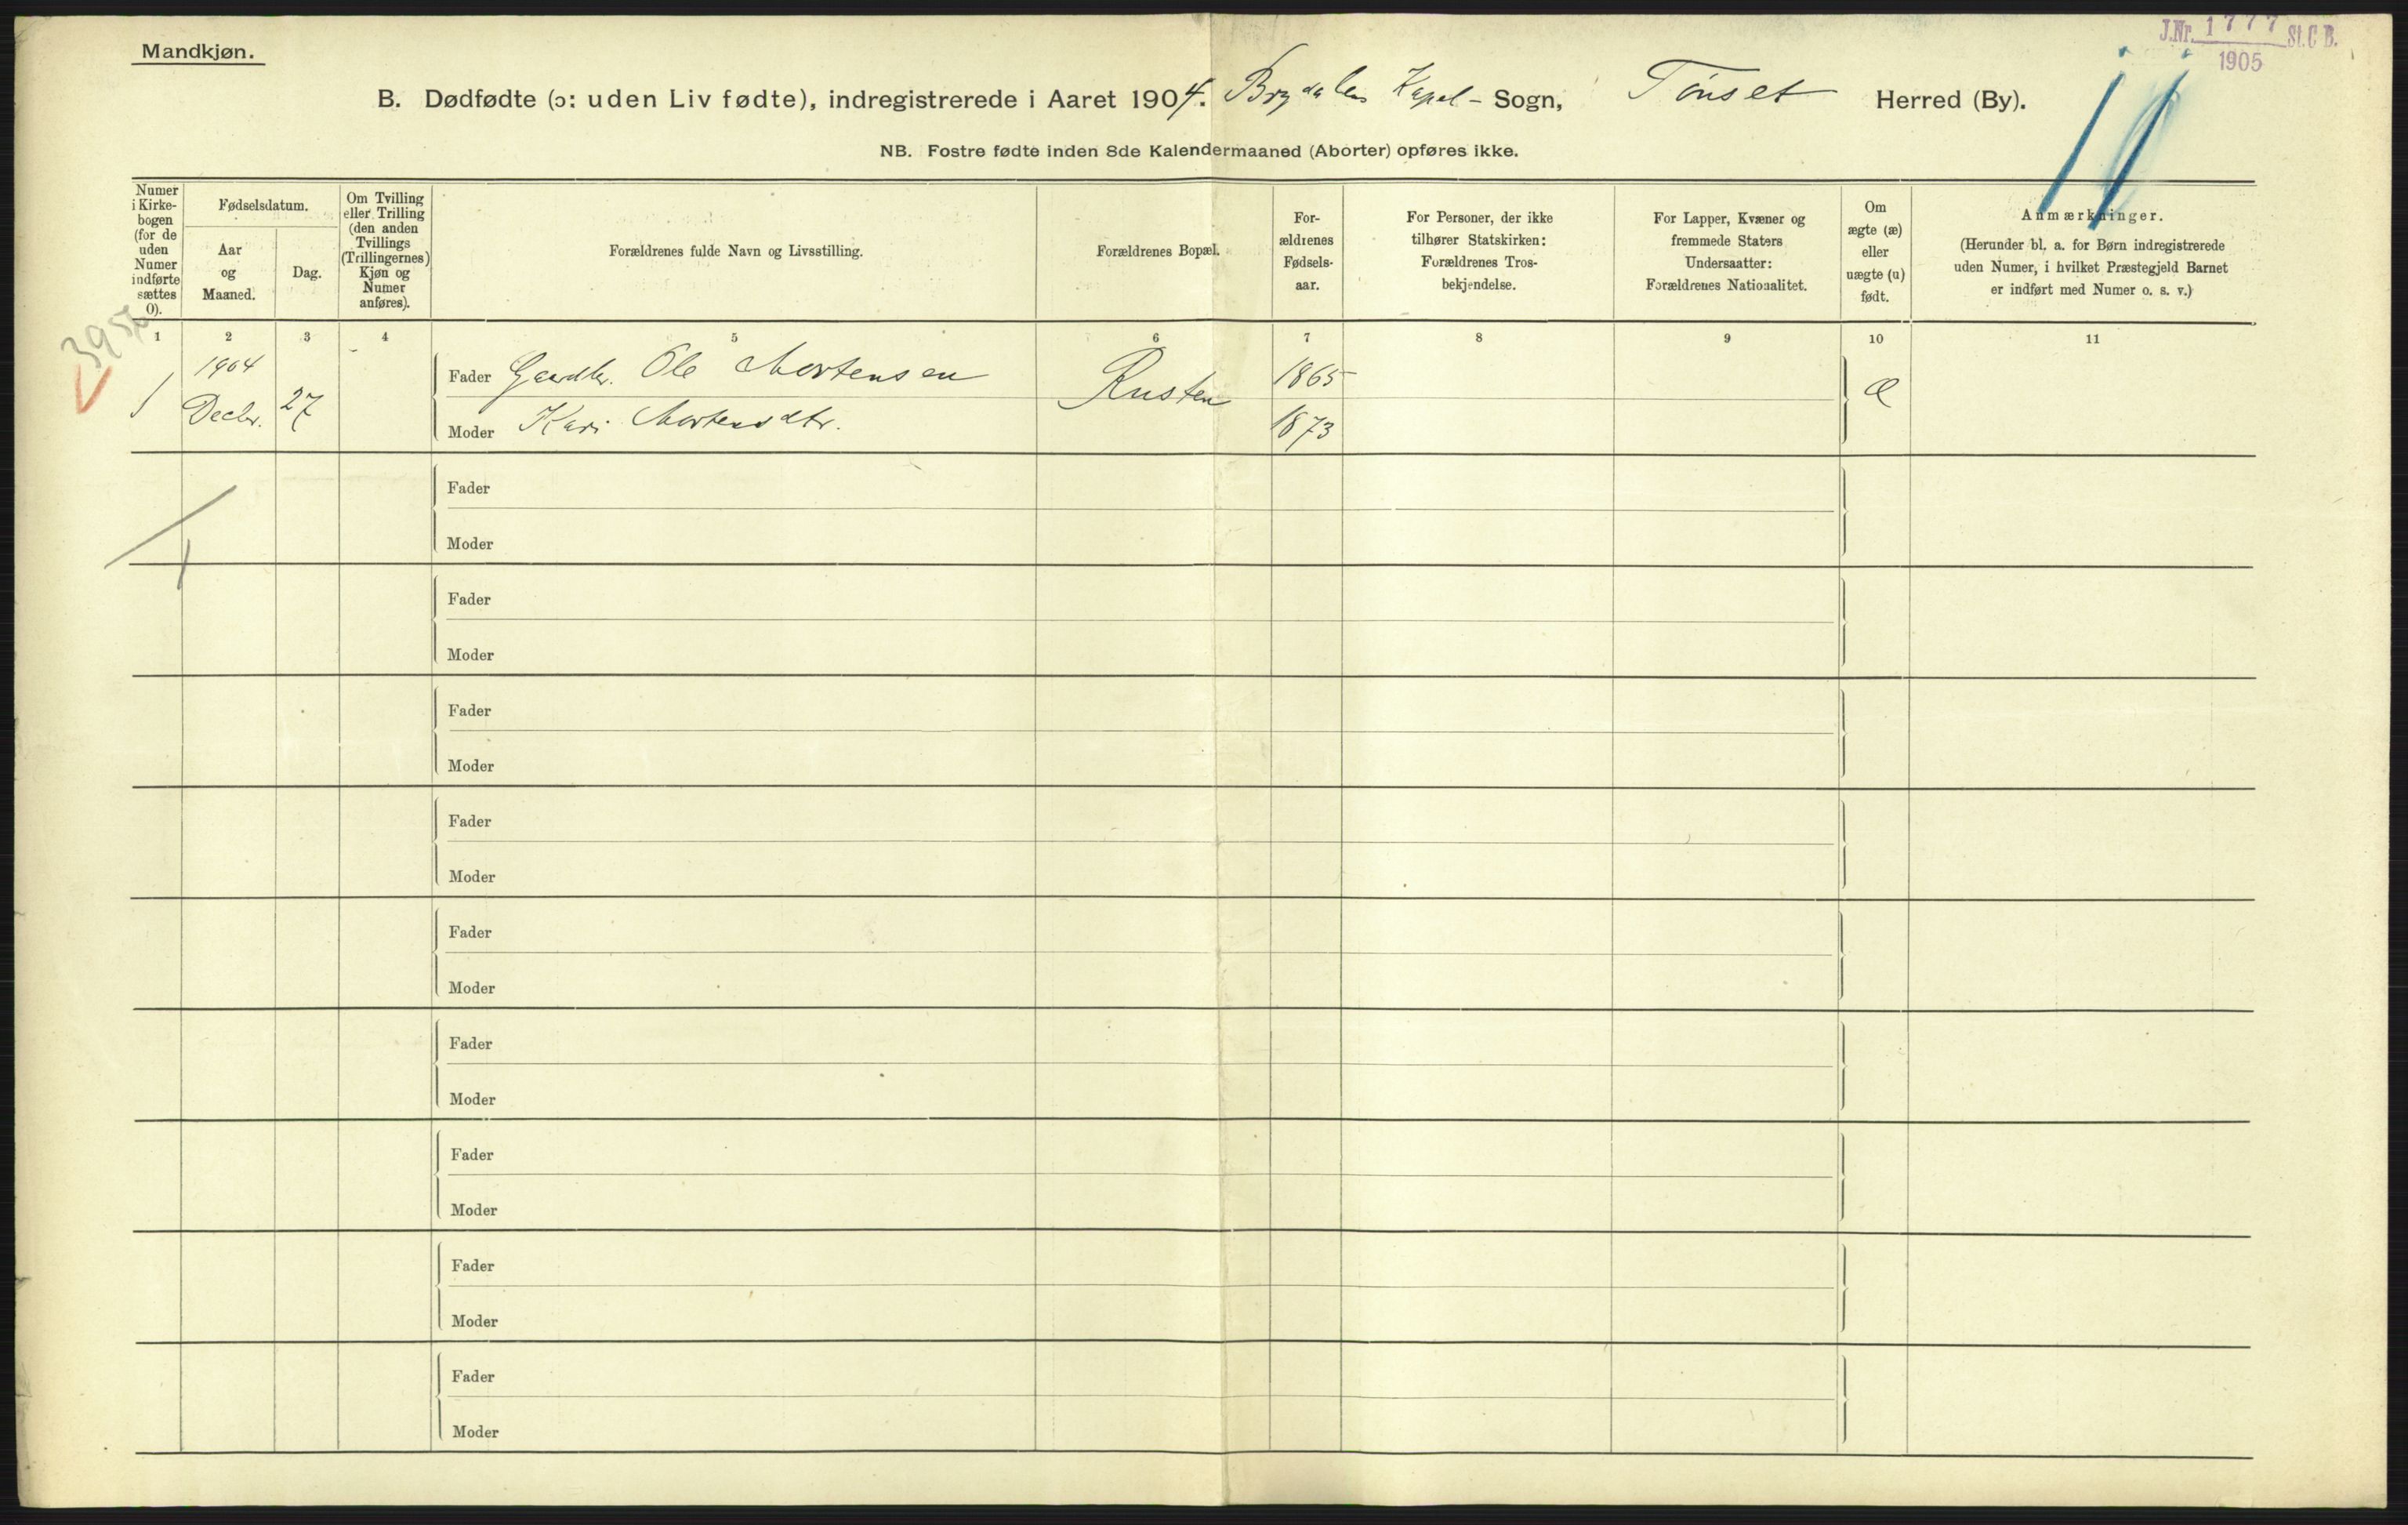 Mandkjøn.
J.Nr. 1777 St. C B.
1905
B. Dødfødte (ɔ: uden Liv fødte), indregistrerede i Aaret 1904. Brydalen Kapel - Sogn, Tönset Herred (By).
NB. Fostre fødte inden 8de Kalendermaaned (Aborter) opføres ikke.
Numer
i Kirke-
bogen
(for de
uden
Numer
indførte
sættes
0).
Fødselsdatum.
Aar
og
Maaned.
Dag.
Om Tvilling
eller Trilling
(den anden
Tvillings
(Trillingernes)
Kjøn og
Numer
anføres).
Forældrenes fulde Navn og Livsstilling.
Forældrenes Bopæl.
For-
ældrenes
Fødsels-
aar.
For Personer, der ikke
tilhører Statskirken:
Forældrenes Tros-
bekjendelse.
For Lapper, Kvæner og
fremmede Staters
Undersaatter:
Forældrenes Nationalitet.
Om
ægte (æ)
eller
uægte (u)
født.
Anmærkninger.
(Herunder bl. a. for Børn indregistrerede
uden Numer, i hvilket Præstegjeld Barnet
er indført med Numer o. s. v.)
1 2 3 4 5 6 7 8 9 10 11
1 1904 Decbr. 27
Fader Gaardbr. Ole Mortensen Rusten 1865 æ
Moder Kari Mortensdtr. 1873
Fader
Moder
Fader
Moder
Fader
Moder
Fader
Moder
Fader
Moder
Fader
Moder
Fader
Moder
Fader
Moder
Fader
Moder